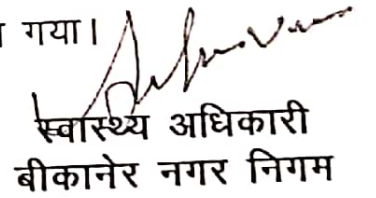 गया।
स्वास्थ्य अधिकारी
बीकानेर नगर निगम